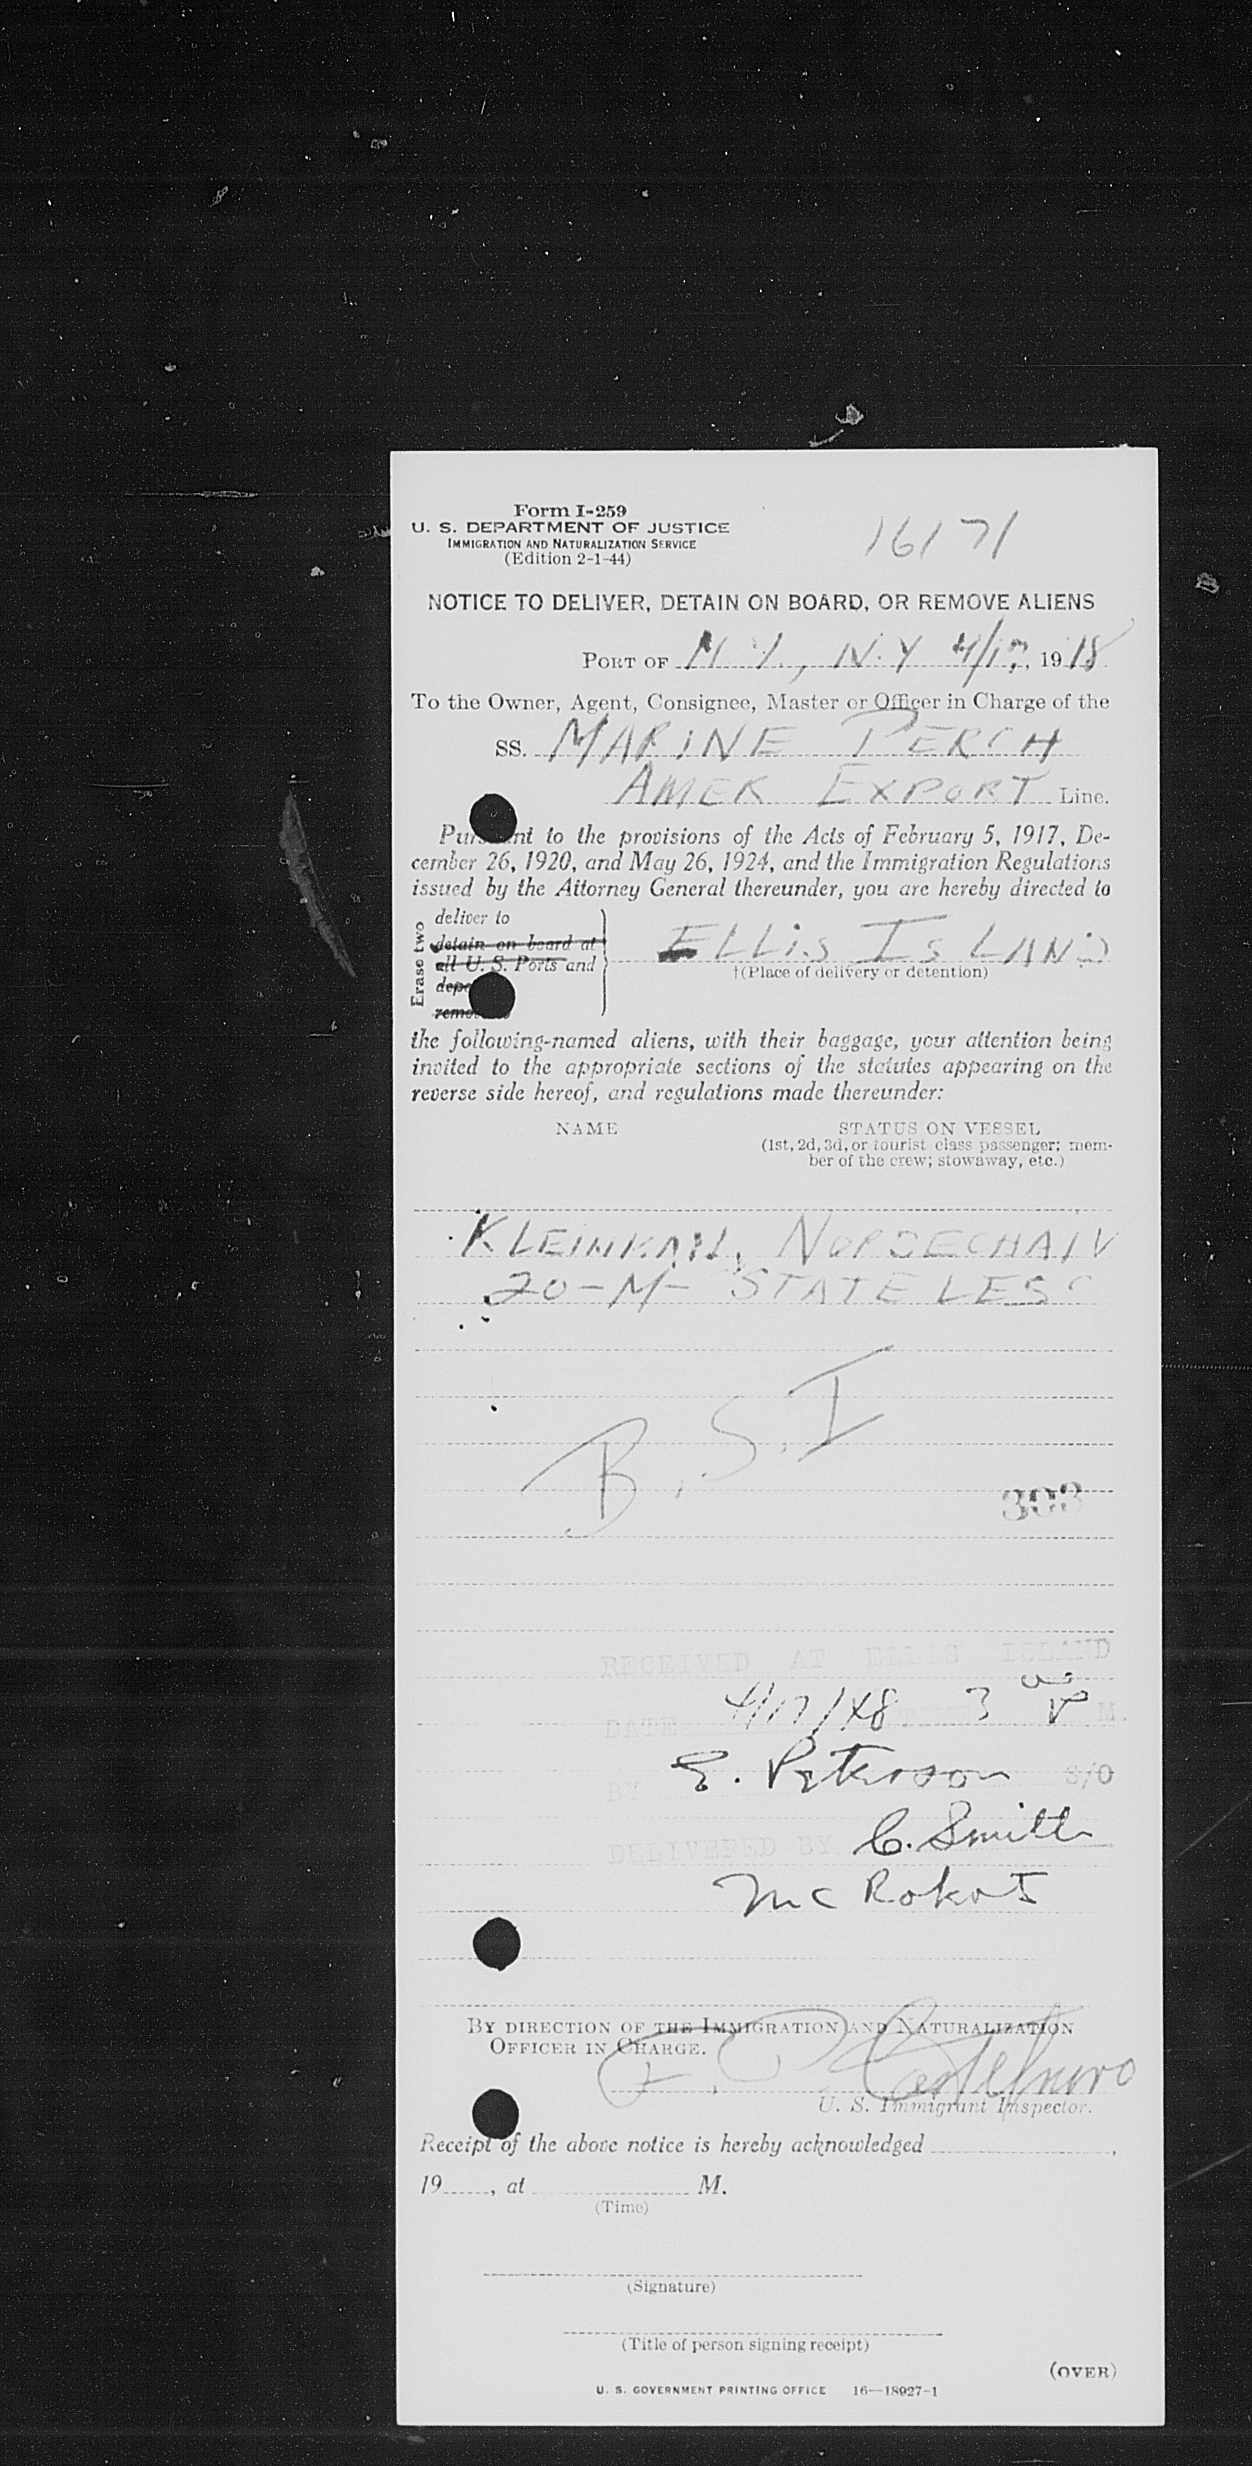 Form I-259
U. S. DEPARTMENT OF JUSTICE
IMMIGRATION AND NATURALIZATION SERVICE
(Edition 2-1-44)
16171
NOTICE TO DELIVER, DETAIN ON BOARD, OR REMOVE ALIENS
PORT OF N.Y., N.Y 4/17, 1948
To the Owner, Agent, Consignee, Master or Officer in Charge of the
SS. MARINE PERCH
AMER EXPORT Line.
Pursuant to the provisions of the Acts of February 5, 1917, De-
cember 26, 1920, and May 26, 1924, and the Immigration Regulations
issued by the Attorney General thereunder, you are hereby directed to
Erase two
deliver to
detain on board at
all U. S. Ports and
ELLIS ISLAND
†(Place of delivery or detention)
the following-named aliens, with their baggage, your attention being
invited to the appropriate sections of the statutes appearing on the
reverse side hereof, and regulations made thereunder:
NAME
STATUS ON VESSEL
(1st, 2d, 3d, or tourist class passenger; mem-
ber of the crew; stowaway, etc.)
20-M- STATELESS
B.S.I
303
RECEIVED AT ELLIS ISLAND
DATE 4/17/48 3 P M.
BY E. Peterson S/O
DELIVERED BY C. Smith
BY DIRECTION OF THE IMMIGRATION AND NATURALIZATION
OFFICER IN CHARGE.
U. S. Immigrant Inspector.
Receipt of the above notice is hereby acknowledged ,
19 , at M.
(Time)
(Signature)
(Title of person signing receipt)
(OVER)
U. S. GOVERNMENT PRINTING OFFICE 16—18927-1